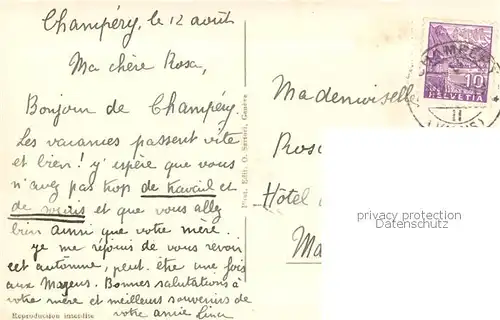 Champéry, le 12 août
Ma chère Rosa,
Bonjour de Champéry.
Les vacances passent vite
et bien! J'espère que vous
n'avez pas trop de travail et
de soucis et que vous allez
bien ainsi que votre mère.
Je me réjouis de vous revoir
cet automne, peut-être une fois
aux Mayens. Bonnes salutations à
votre mère et meilleurs souvenirs de
votre amie
Reproduction interdite
Phot. Edit. O. Sartori, Genève
CHAMPÉRY
10
HELVETIA
II
(VALAIS)
Mademoiselle
Rosa
Hôtel
Ma
privacy protection
Datenschutz